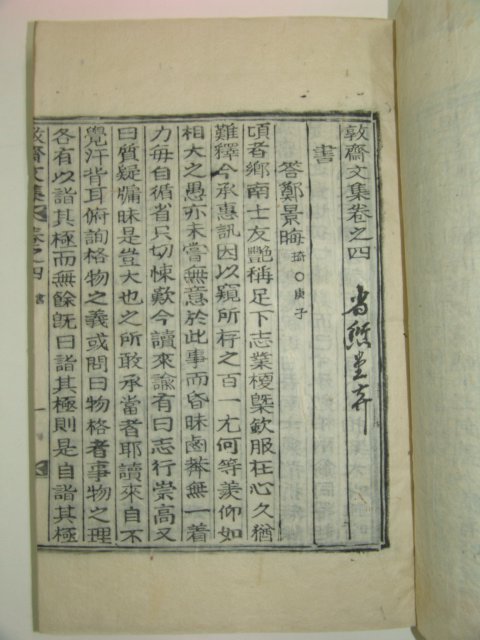 敦齋文集卷之四
書
答鄭景晦 琦○庚子
頃者鄉南士友艷稱足下志業稜槩歆服在心久猶
難釋今承惠訊因以窺所存之百一尤何等羨仰如
相大之愚亦未嘗無意於此事而昏昧鹵莽無一着
力每自循省只切悚歎今讀來諭有曰志行崇高又
曰質疑牖昧是豈大也之所敢承當者耶讀來自不
覺汗背耳俯詢格物之義或問曰物格者事物之理
各有以詣其極而無餘旣曰詣其極則是自詣其極
敦齋文集 卷之四 書 一